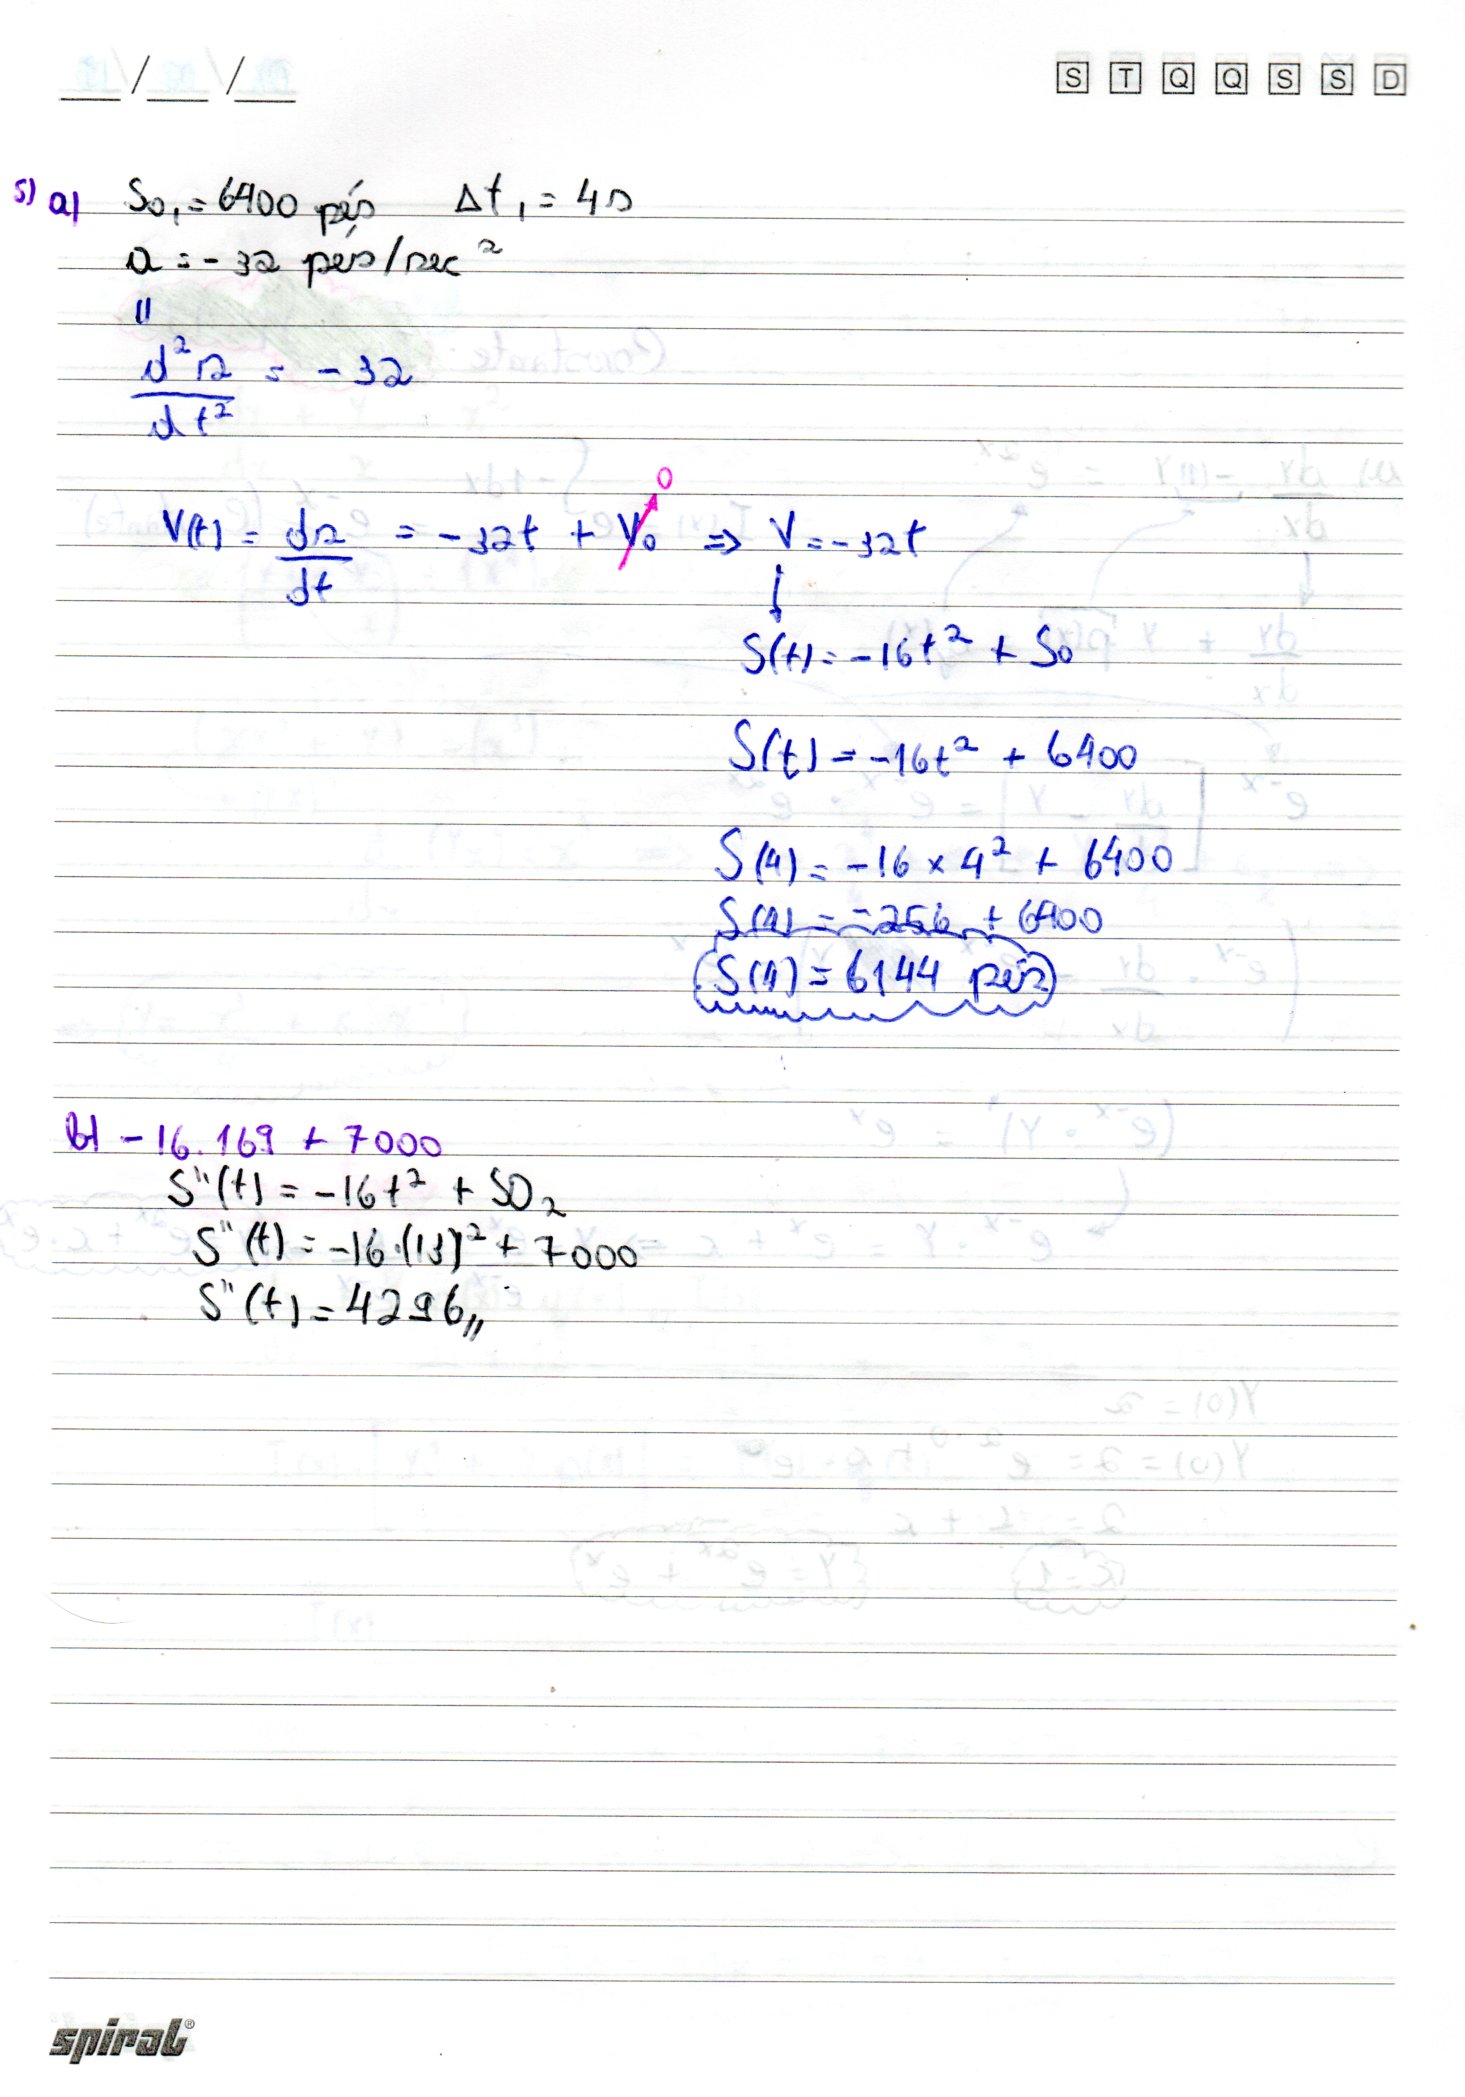 __/__/__ S T Q Q S S D
5) a) S0,1 = 6400 pés Δt,1 = 4s
a = -32 pés/sec²
"
d²s/dt² = -32
0
V(t) = ds/dt = -32t + V0 => V = -32t
↓
S(t) = -16t² + S0
S(t) = -16t² + 6400
S(4) = -16 x 4² + 6400
S(4) = -256 + 6400
S(4) = 6144 pés
b) -16.169 + 7000
S"(t) = -16t² + S02
S"(t) = -16.(13)² + 7000
S"(t) = 4296,,
spiral®